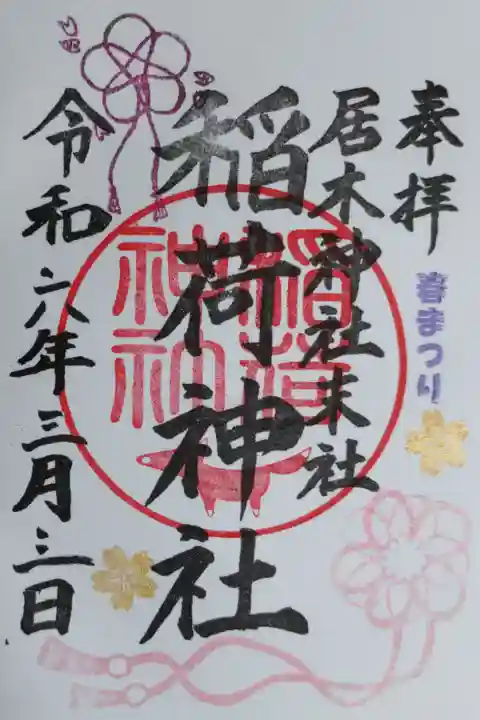 奉拝
春まつり
居木神社末社
稲荷神社
稲荷
神社
令和六年三月三日